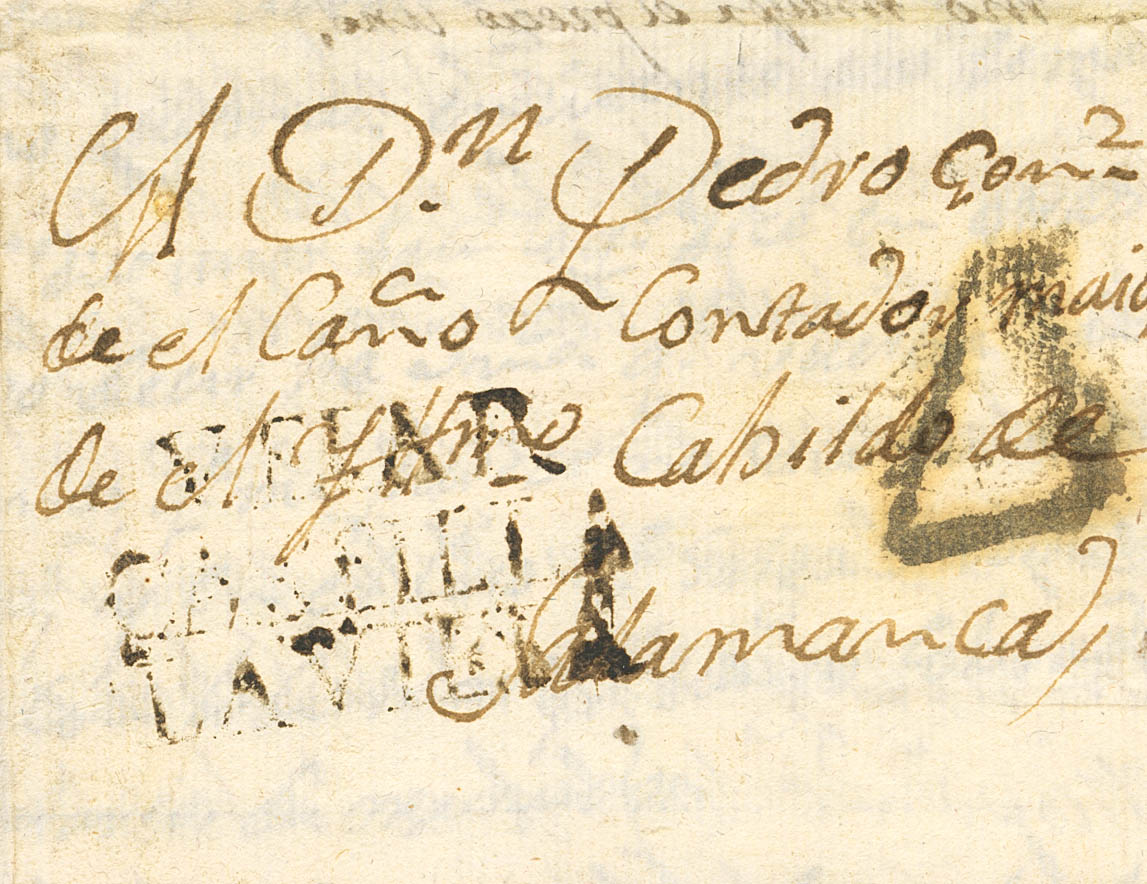 A D.n Pedro Gonz
de el Caño Contador maio
de el Yltmo Cabildo de
Salamanca
VEJAR
CASTILL
LAVIEJA